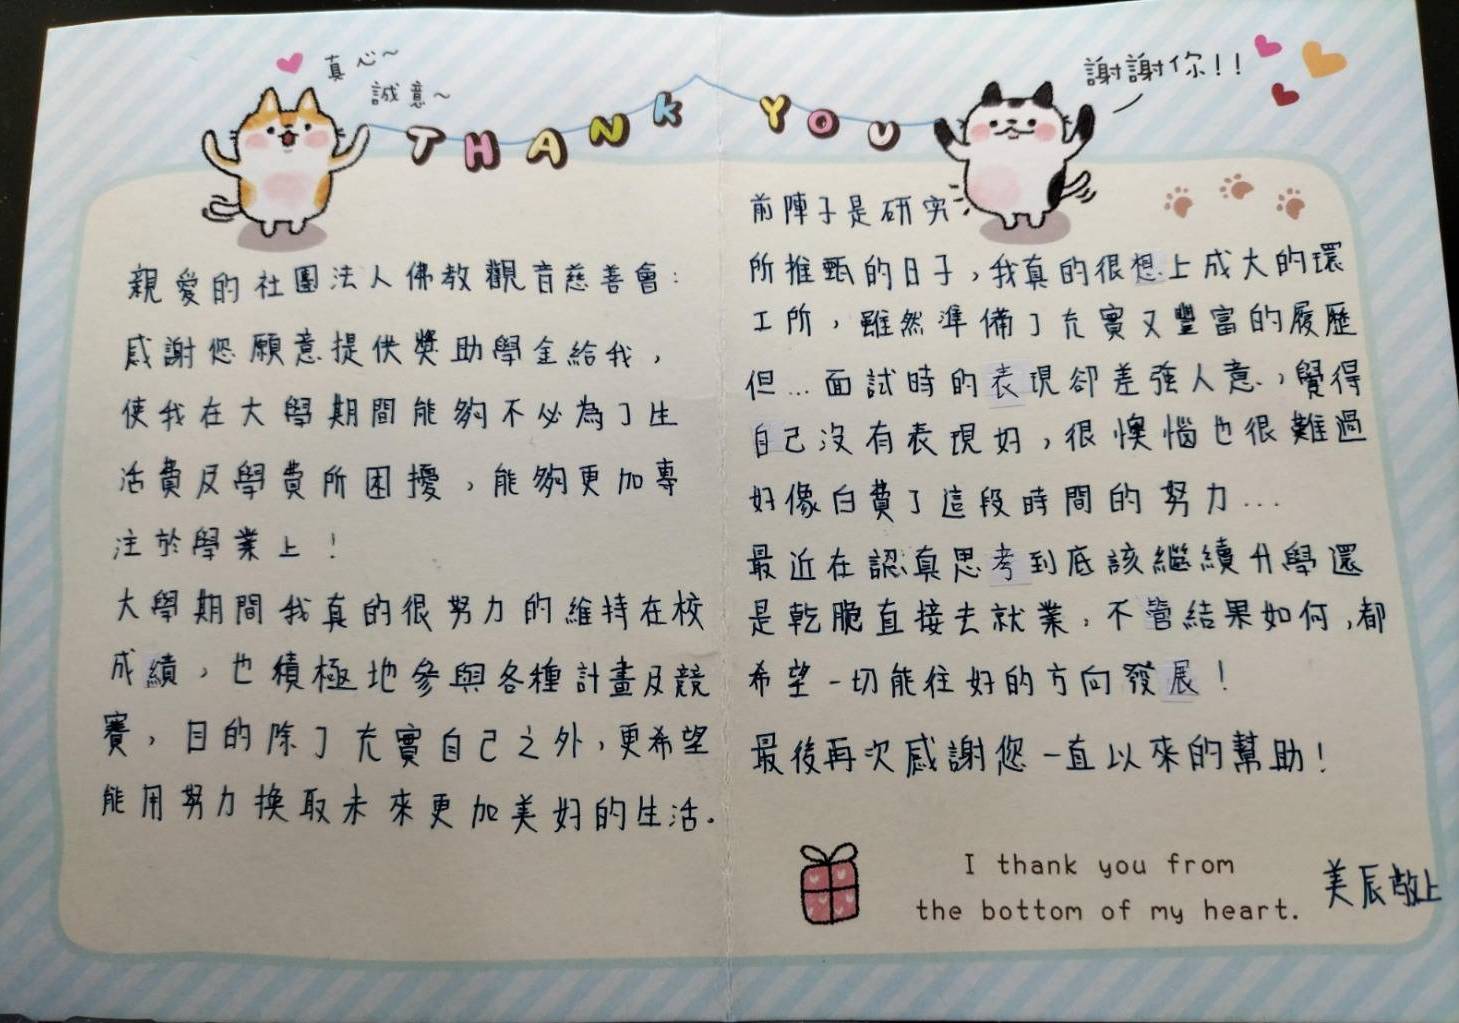 真心~
誠意~
THANK YOU
謝謝你!!
親愛的社團法人佛教觀音慈善會：
感謝您願意提供獎助學金給我，
使我在大學期間能夠不必為了生
活費及學費所困擾，能夠更加專
注於學業上！
大學期間我真的很努力的維持在校
成績，也積極地參與各種計畫及競
賽，目的除了充實自己之外，更希望
能用努力換取未來更加美好的生活。
前陣子是研究
所推甄的日子，我真的很想上成大的環
工所，雖然準備了充實又豐富的履歷
但...面試時的表現卻差強人意，覺得
自己沒有表現好，很懊惱也很難過
好像白費了這段時間的努力...
最近在認真思考到底該繼續升學還
是乾脆直接去就業，不管結果如何，都
希望一切能往好的方向發展！
最後再次感謝您一直以來的幫助！
I thank you from
the bottom of my heart.
美辰敬上